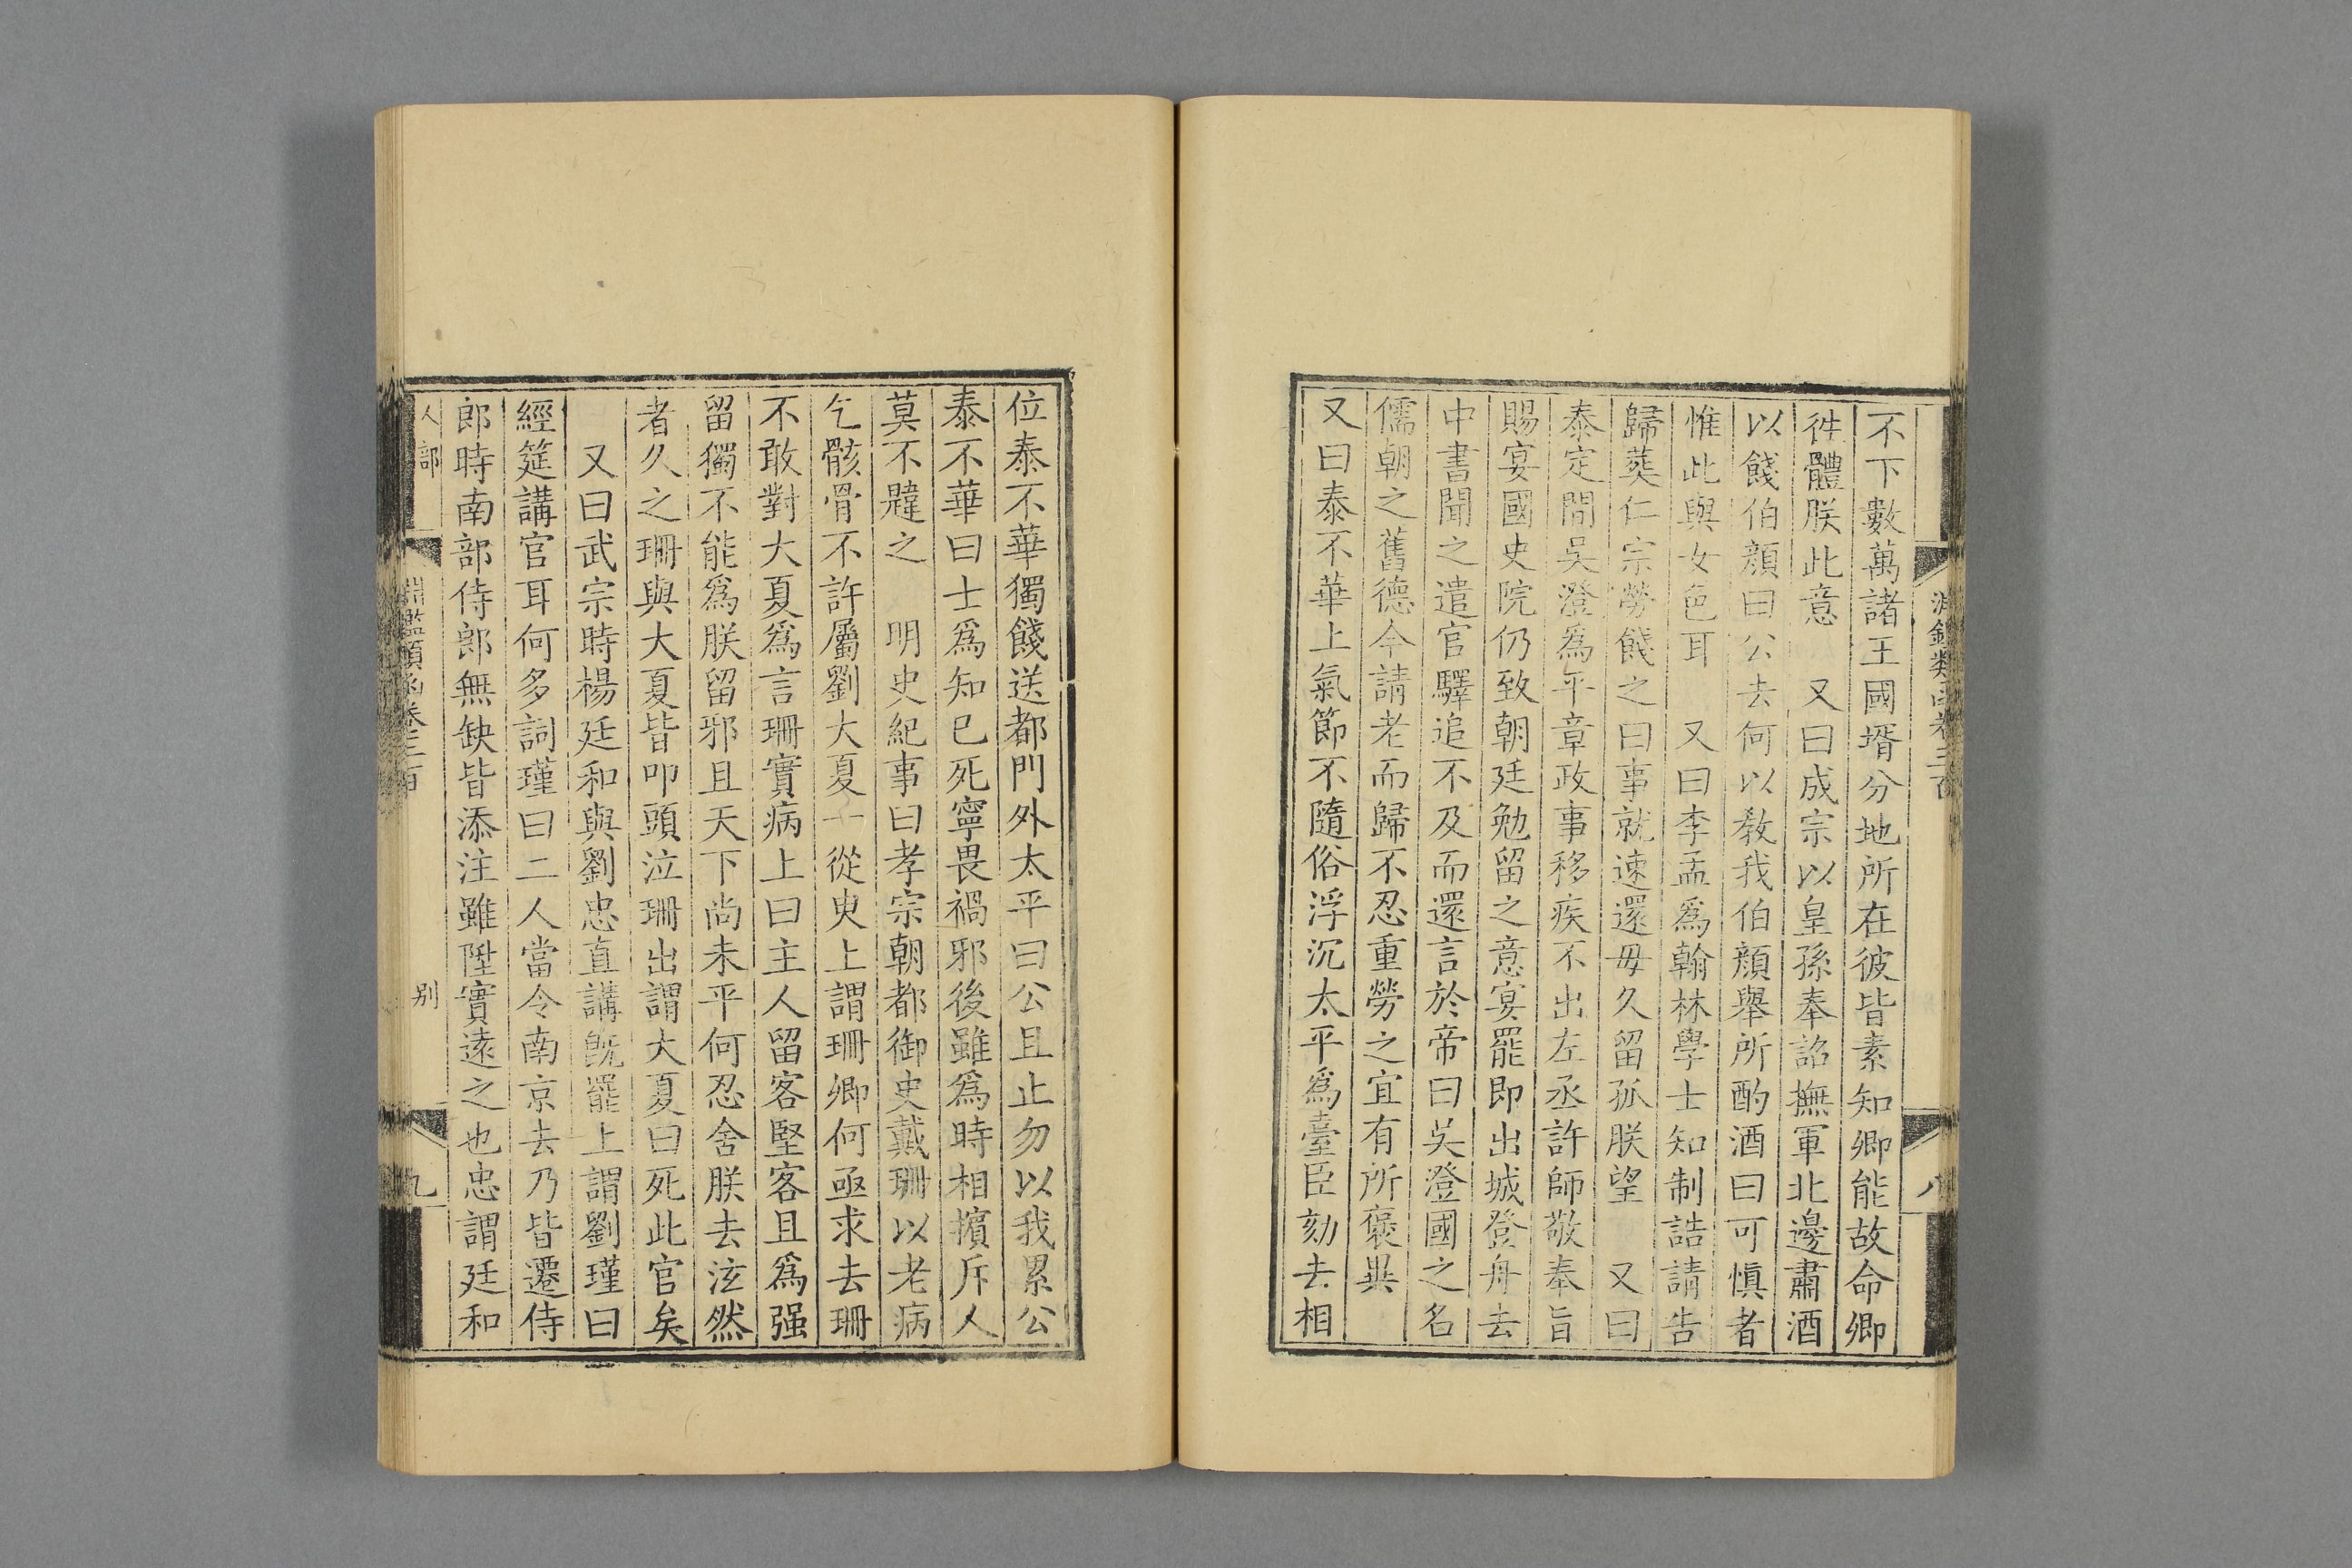 不下數萬諸王國壻分地所在彼皆素知卿能故命卿
徃體朕此意　又曰成宗以皇孫奉詔撫軍北邊肅酒
以餞伯顏曰公去何以教我伯顏舉所酌酒曰可慎者
惟此與女色耳　又曰李孟爲翰林學士知制誥請告
歸葬仁宗勞餞之曰事就速還毋久留孤朕望　又曰
泰定間吳澄爲平章政事移疾不出左丞許師敬奉旨
賜宴國史院仍致朝廷勉留之意宴罷即出城登舟去
中書聞之遣官驛追不及而還言於帝曰吳澄國之名
儒朝之舊德今請老而歸不忍重勞之宜有所褒異
又曰泰不華上氣節不隨俗浮沉太平爲臺臣劾去相
位泰不華獨餞送都門外太平曰公且止勿以我累公
泰不華曰士爲知已死寧畏禍邪後雖爲時相擯斥人
莫不韙之　明史紀事曰孝宗朝都御史戴珊以老病
乞骸骨不許屬劉大夏一從臾上謂珊卿何亟求去珊
不敢對大夏爲言珊實病上曰主人留客堅客且爲强
留獨不能爲朕留邪且天下尚未平何忍舍朕去泫然
者久之珊與大夏皆叩頭泣珊出謂大夏曰死此官矣
又曰武宗時楊廷和與劉忠直講旣罷上謂劉瑾曰
經筵講官耳何多詞瑾曰二人當令南京去乃皆遷侍
郎時南部侍郎無缺皆添注雖陞實遠之也忠謂廷和
人部　淵鑑類函卷三百　别　九